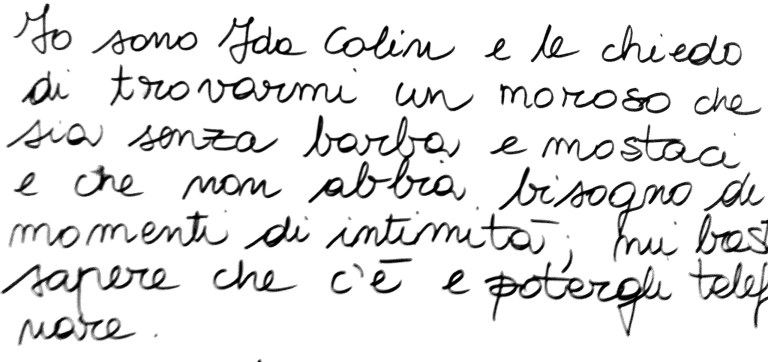 Io sono Ida Colin e le chiedo
di trovarmi un moroso che
sia senza barba e mostaci
e che non abbia bisogno di
momenti di intimità, mi bast
sapere che c'è e potergli telef
nare.